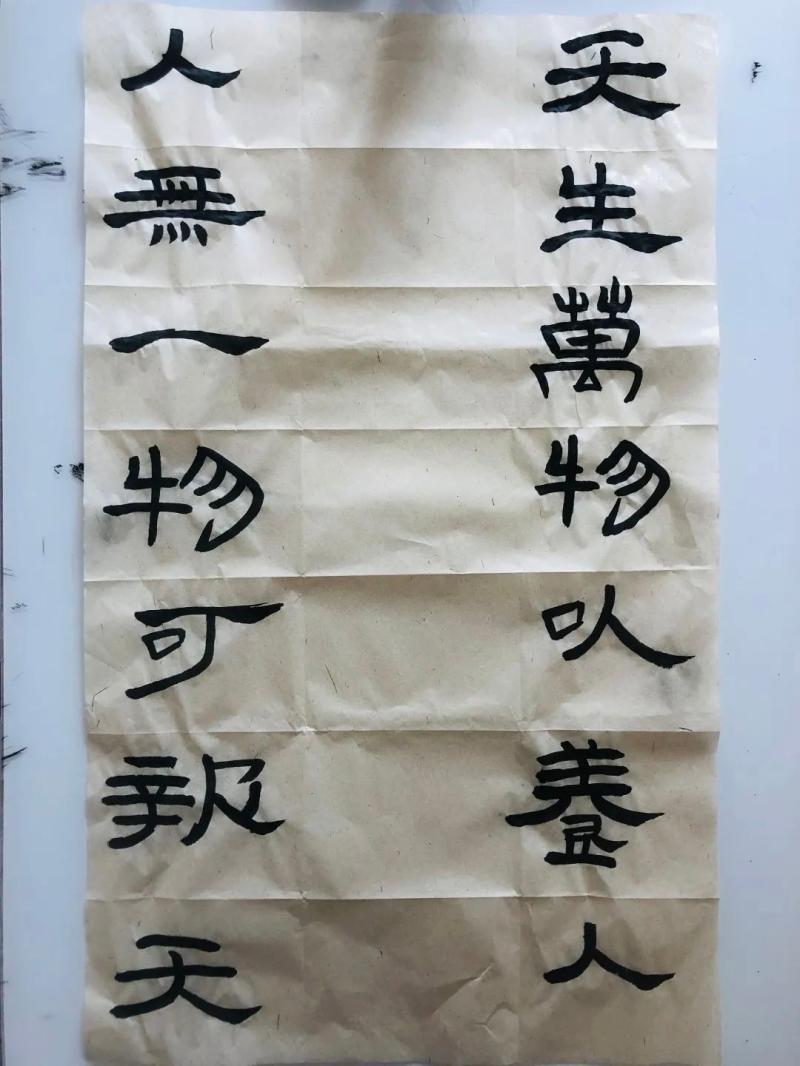 天生萬物以養人
人無一物可報天